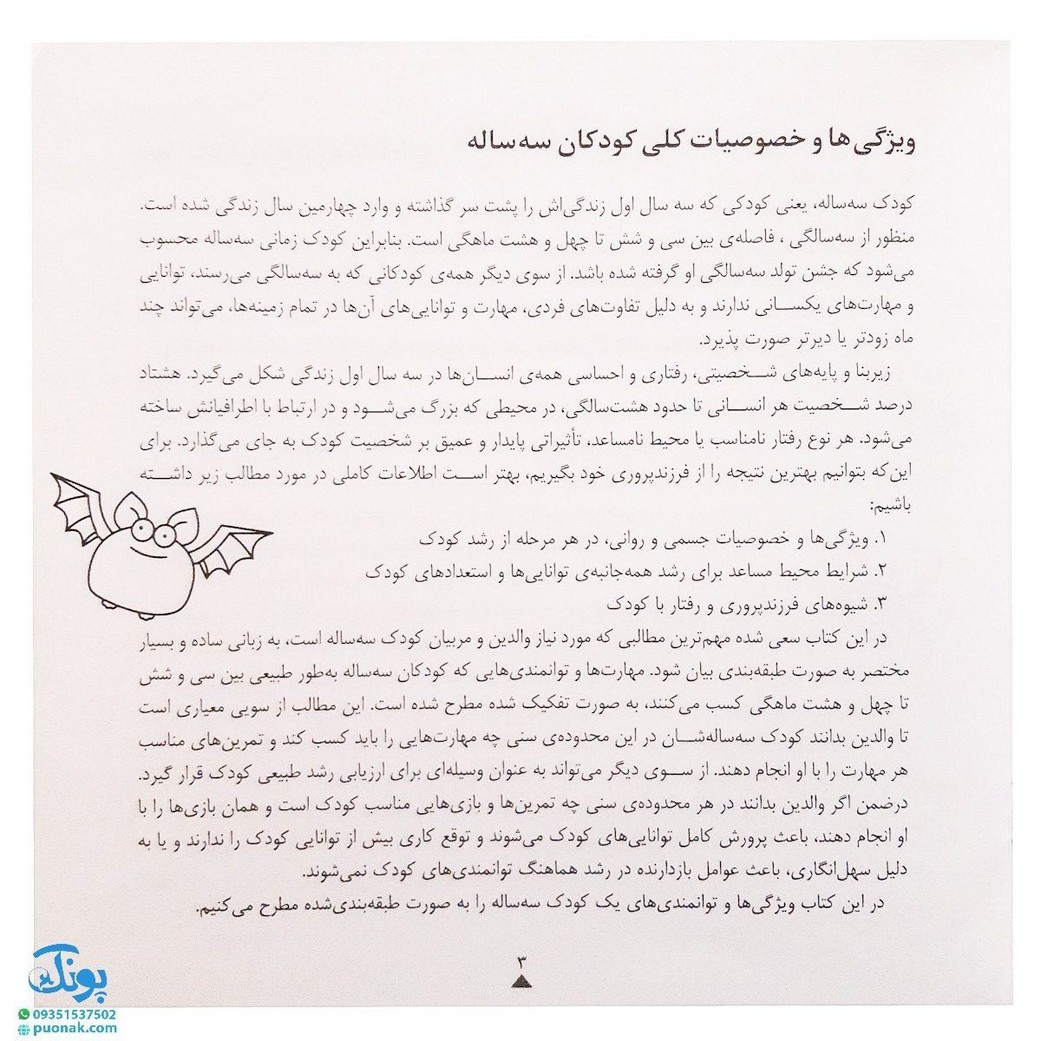 ویژگی‌ها و خصوصیات کلی کودکان سه‌ساله
کودک سه‌ساله، یعنی کودکی که سه سال اول زندگی‌اش را پشت سر گذاشته و وارد چهارمین سال زندگی شده است.
منظور از سه‌سالگی ، فاصله‌ی بین سی و شش تا چهل و هشت ماهگی است. بنابراین کودک زمانی سه‌ساله محسوب
می‌شود که جشن تولد سه‌سالگی او گرفته شده باشد. از سوی دیگر همه‌ی کودکانی که به سه‌سالگی می‌رسند، توانایی
و مهارت‌های یکسـانی ندارند و به دلیل تفاوت‌های فردی، مهارت و توانایی‌های آن‌ها در تمام زمینه‌ها، می‌تواند چند
ماه زودتر یا دیرتر صورت پذیرد.
زیربنا و پایه‌های شـخصیتی، رفتاری و احساسی همه‌ی انسـان‌ها در سه سال اول زندگی شکل می‌گیرد. هشتاد
درصد شـخصیت هر انسـانی تا حدود هشت‌سالگی، در محیطی که بزرگ می‌شـود و در ارتباط با اطرافیانش ساخته
می‌شود. هر نوع رفتار نامناسب یا محیط نامساعد، تأثیراتی پایدار و عمیق بر شخصیت کودک به جای می‌گذارد. برای
این‌که بتوانیم بهترین نتیجه را از فرزندپروری خود بگیریم، بهتر اسـت اطلاعات کاملی در مورد مطالب زیر داشـته
باشیم:
۱. ویژگی‌ها و خصوصیات جسمی و روانی، در هر مرحله از رشد کودک
۲. شرایط محیط مساعد برای رشد همه‌جانبه‌ی توانایی‌ها و استعدادهای کودک
۳. شیوه‌های فرزندپروری و رفتار با کودک
در این کتاب سعی شده مهم‌ترین مطالبی که مورد نیاز والدین و مربیان کودک سه‌ساله است، به زبانی ساده و بسیار
مختصر به صورت طبقه‌بندی بیان شود. مهارت‌ها و توانمندی‌هایی که کودکان سه‌ساله به‌طور طبیعی بین سی و شش
تا چهل و هشت ماهگی کسب می‌کنند، به صورت تفکیک شده مطرح شده است. این مطالب از سویی معیاری است
تا والدین بدانند کودک سه‌ساله‌شـان در این محدوده‌ی سنی چه مهارت‌هایی را باید کسب کند و تمرین‌های مناسب
هر مهارت را با او انجام دهند. از سـوی دیگر می‌تواند به عنوان وسیله‌ای برای ارزیابی رشد طبیعی کودک قرار گیرد.
درضمن اگر والدین بدانند در هر محدوده‌ی سنی چه تمرین‌ها و بازی‌هایی مناسب کودک است و همان بازی‌ها را با
او انجام دهند، باعث پرورش کامل توانایی‌های کودک می‌شوند و توقع کاری بیش از توانایی کودک را ندارند و یا به
دلیل سهل‌انگاری، باعث عوامل بازدارنده در رشد هماهنگ توانمندی‌های کودک نمی‌شوند.
در این کتاب ویژگی‌ها و توانمندی‌های یک کودک سه‌ساله را به صورت طبقه‌بندی‌شده مطرح می‌کنیم.
۳
پونک
09351537502
puonak.com